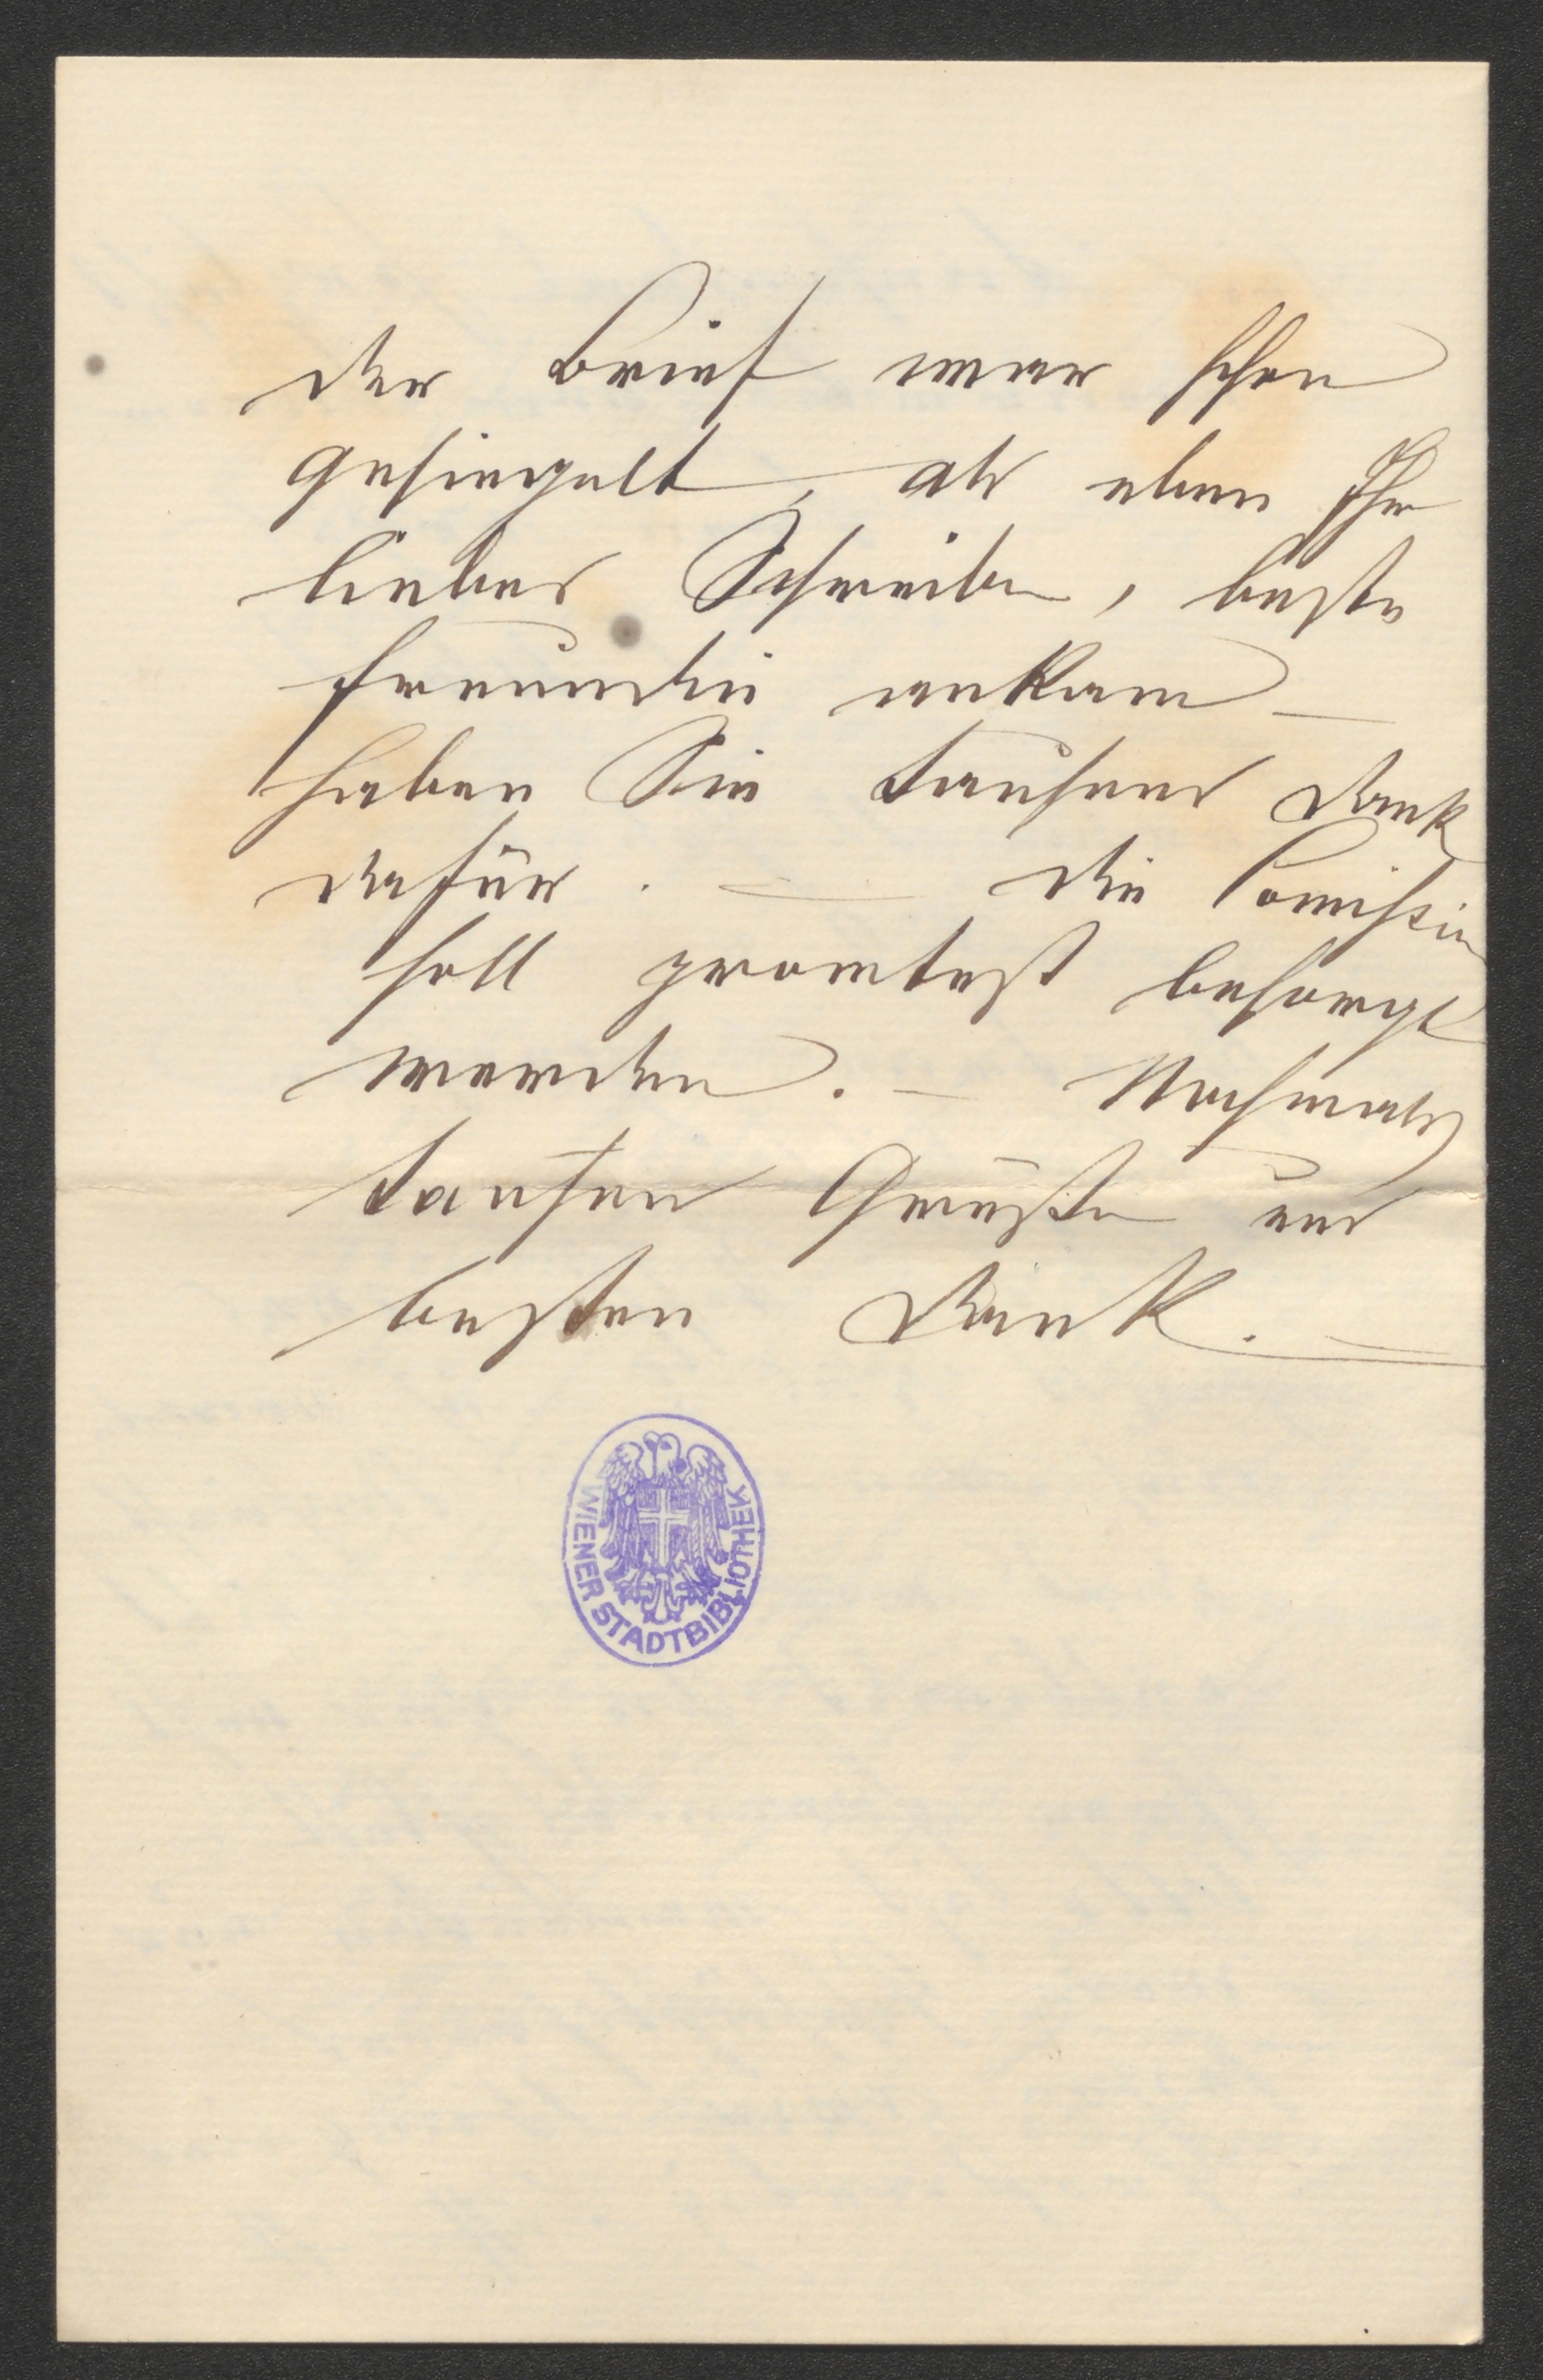 der Brief war schon
gesiegelt, als eben Ihr
liebes Schreiben, beste
Freundin ankam –
haben Sie tausend Dank
dafür. – die Comission
soll promtest besorgt
werden. – Nochmals
tausend Grüße und
besten Dank. –
WIENER STADTBIBLIOTHEK